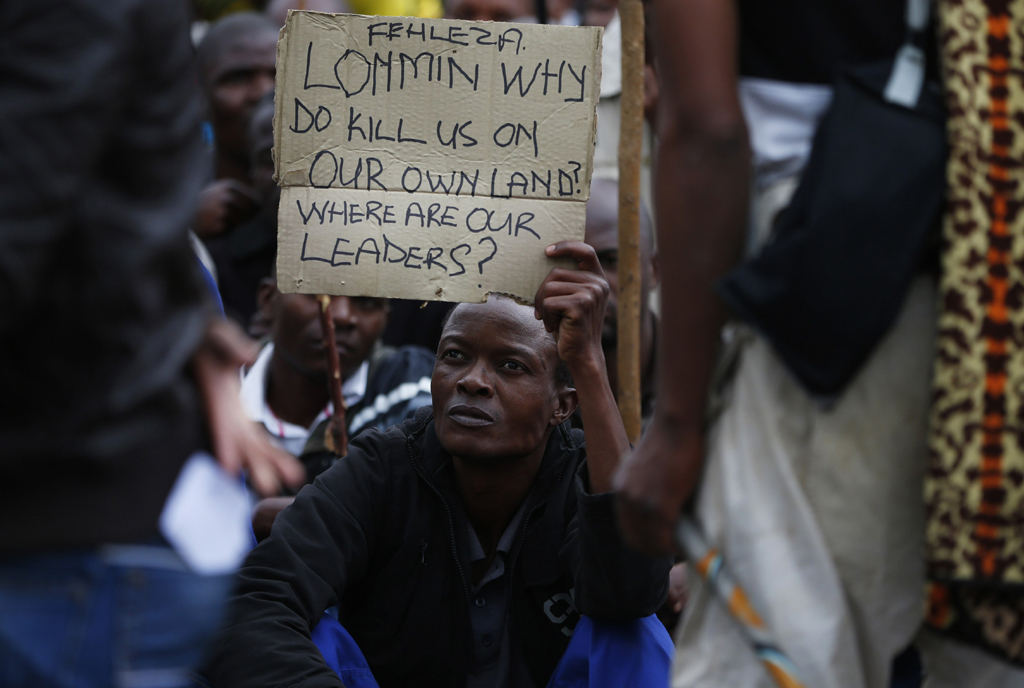 FEHLEZA.
LONMIN WHY
DO KILL US ON
OUR OWN LAND?
WHERE ARE OUR
LEADERS?